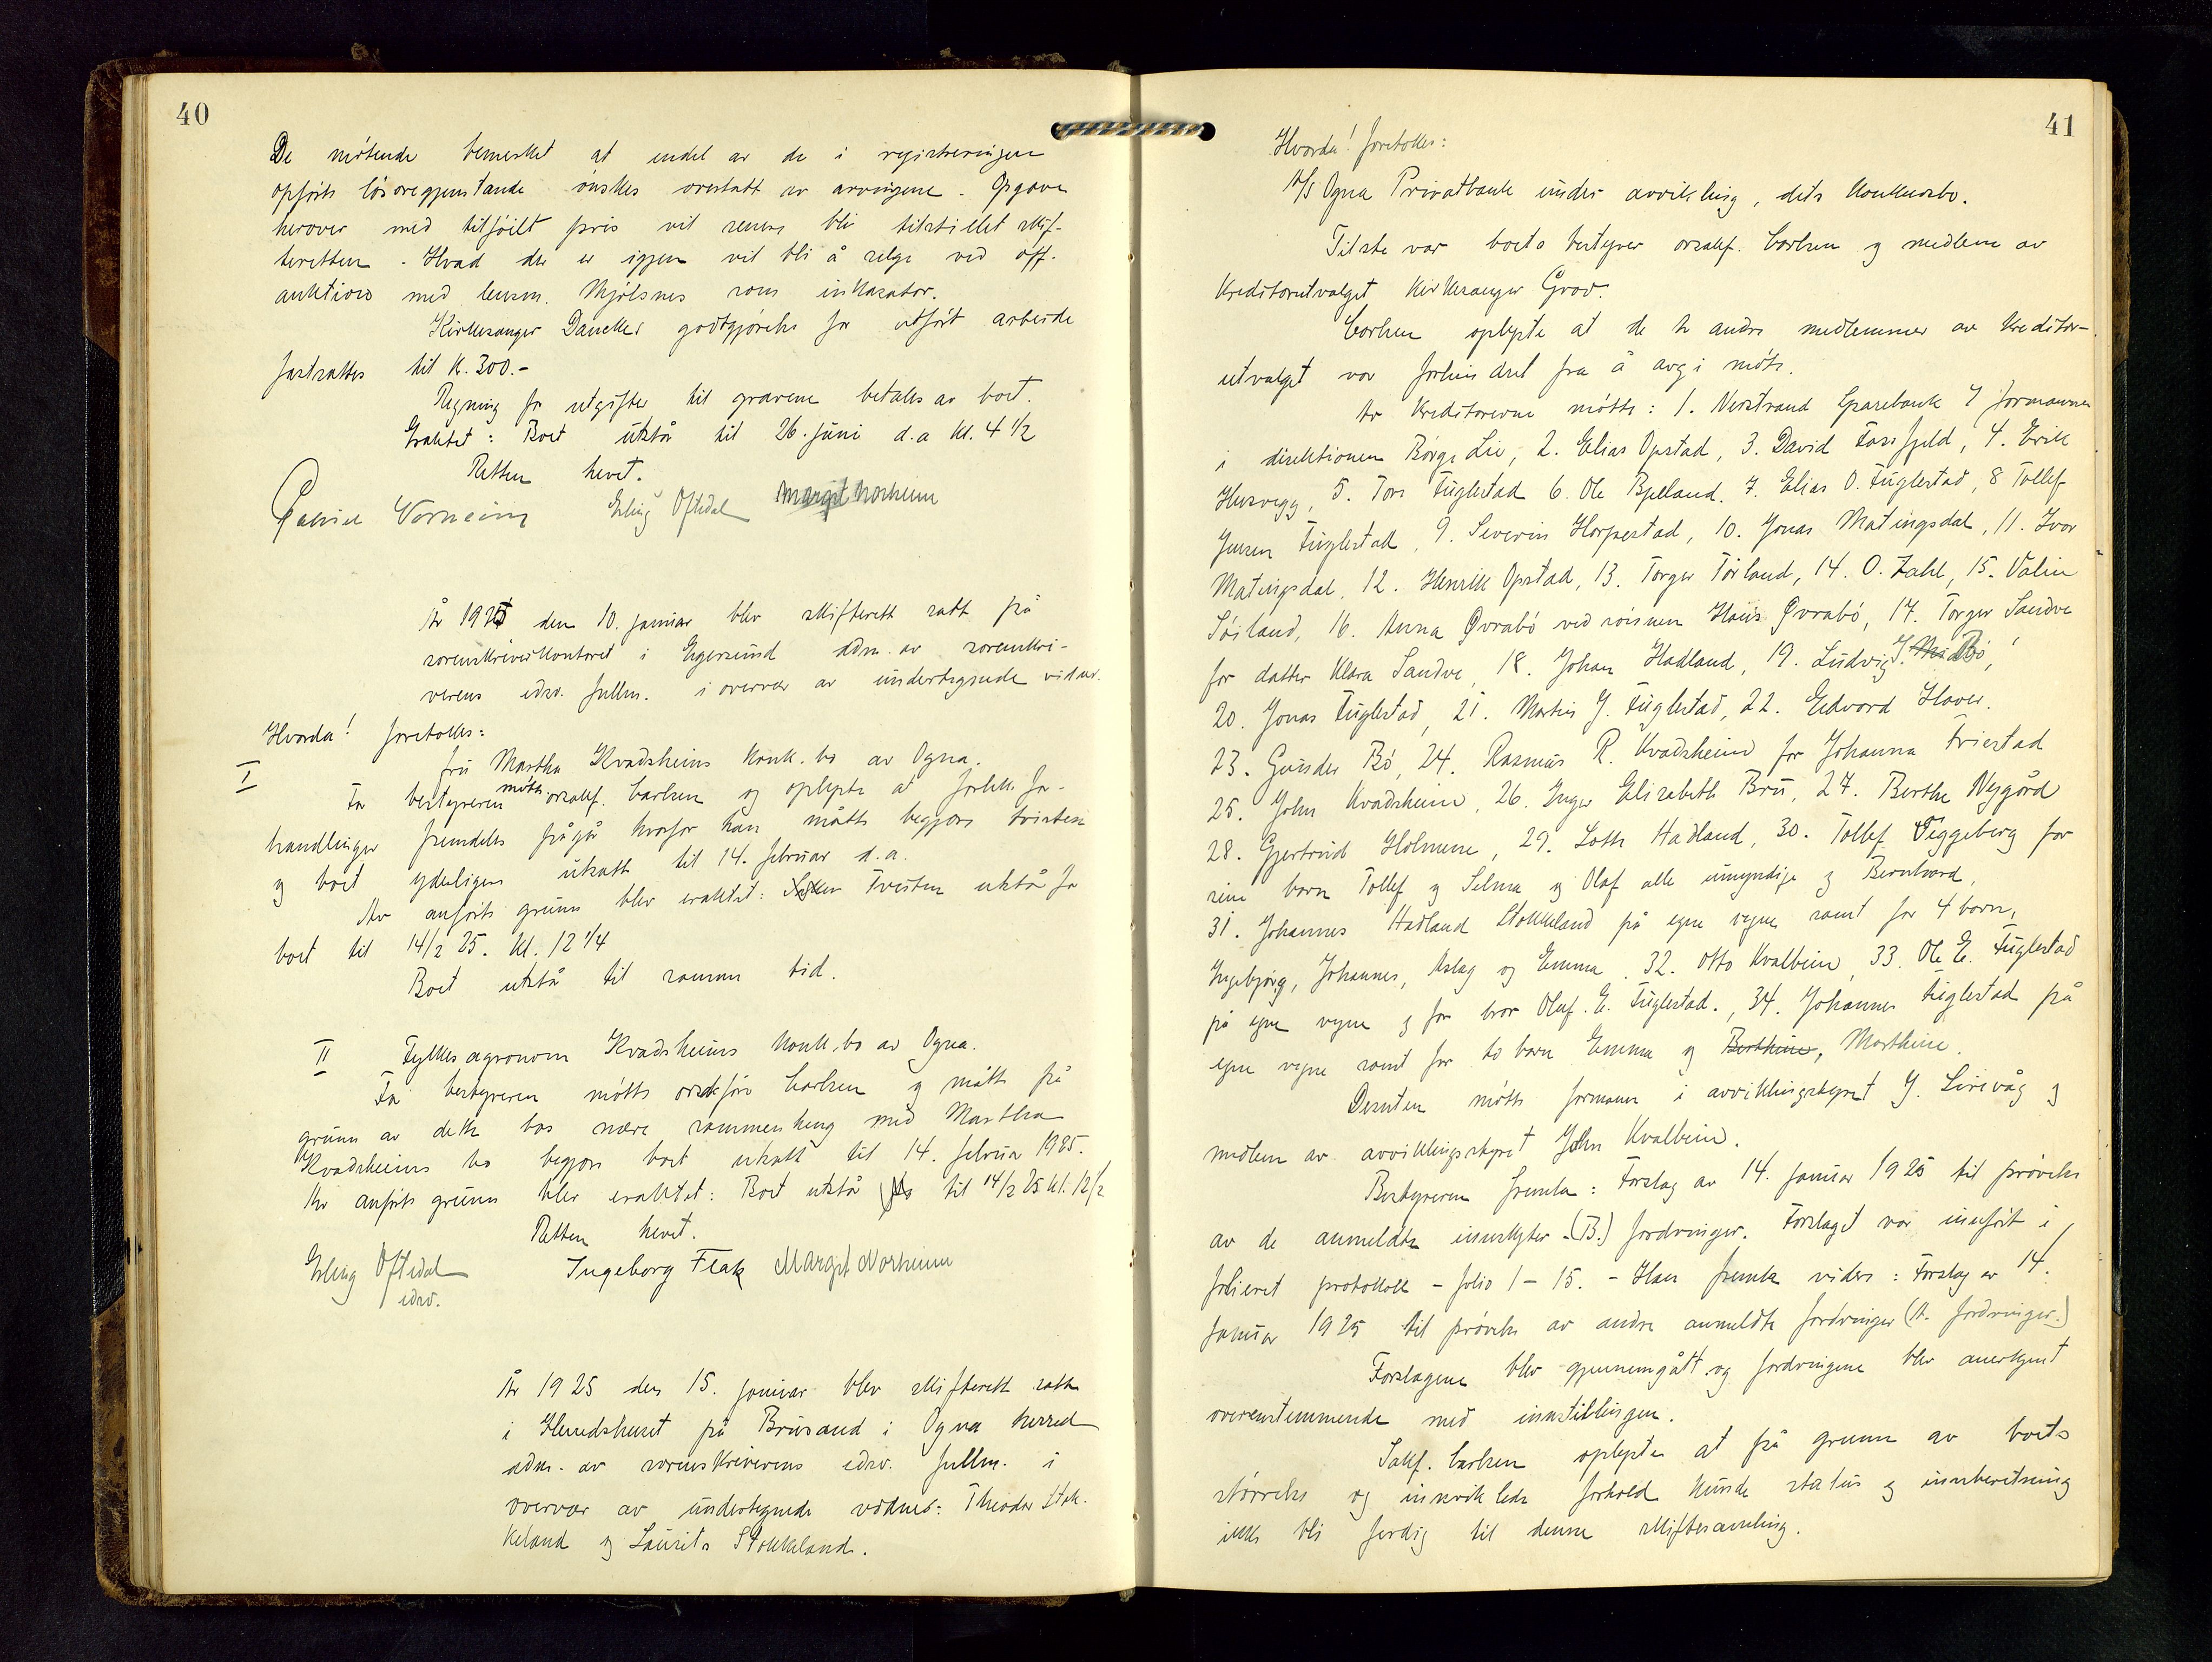 40
De møtende bemerket at endel av de i registreringen
opførte løsøregjenstande ønskes overtatt av arvingene. Opgave
herover med tilføiet pris vil senere bli tilstillet skif-
teretten. Hvad der er igjen vil bli å selge ved off.
auktion med lensm. Mjølsnes som inkasator.
Kirkesanger Danckel godtgjørelse for utført arbeide
fastsattes til k. 300.-
Regning for utgifter til gravene betales av boet.
Eraktet: Boet utstår til 26. juni d.a kl. 4 1/2
Retten hevet.
Gabriel Norheim Erling Oftedal Margit Norheim
År 1925 den 10. januar blev skifterett satt på
sorenskriverkontoret i Egersund adm. av sorenskri-
verens edsv. fullm. i overvær av undertegnede vidner.
Hvorda! foretokes:
I
fru Martha Kvadsheims konk. bo av Ogna.
For bestyreren møtte orsakf. Carlsen og oplyste at forliks for-
handlinger fremdeles pågår hvorfor han måtte begjære tvisten
og boet yderligere utsatt til 14. februar d.a.
Av anførte grunn blev eraktet: Tvisten utstår for
boet til 14/2 25. kl. 12 1/4
Boet utstår til samme tid.
II Fylkesagronom Kvadsheims konk. bo av Ogna.
For bestyreren møtte orsakfører Carlsen og måtte på
grunn av dette bos nære sammenheng med Martha
Kvadsheims bo begjære boet utsatt til 14. februar 1925.
Av anførte grunn blev eraktet: Boet utstår til 14/2 25 kl. 12 1/2
Retten hevet.
Erling Oftedal Ingeborg Flak Margit Norheim
edsv.
År 1925 den 15. januar blev skifterett satt
i Herredshuset på Brusand i Ogna herred
adm. av sorenskriverens edsv. fullm. i
overvær av undertegnede vidner: Theodor Stok-
keland og Laurits Stokkeland.
41
Hvorda! foretokes:
A/S Ogna Privatbank under avvikling, dets konkursbo.
Tilstede var boets bestyrer orsakf. Carlsen og medlem av
kreditorutvalget kirkesanger Grov.
Carlsen oplyste at de to andre medlemmer av kreditor-
utvalget var forhindret fra å avgi møte.
Av kreditorerne møtte: 1. Nerstrand Sparebank v/ formannen
i direktionen Børge Lie, 2. Elias Opstad, 3. David Fossfjeld, 4. Erik
Husvegg, 5. Tore Fuglestad 6. Ole Bjelland. 7. Elias O. Fuglestad, 8 Tollef
Jensen Fuglestad, 9. Severin Horpestad, 10. Jonas Matingsdal, 11. Ivar
Matingsdal, 12. Henrik Opstad, 13. Torger Torland, 14. O. Zahl, 15. Valin
Søiland, 16. Anna Øvrabø ved sønnen Hans Øvrabø, 17. Torger Sandve
for datter Klara Sandve, 18. Johan Hadland, 19. Ludvig J. Bø,
20. Jonas Fuglestad, 21. Martin J. Fuglestad, 22. Edvard Haver.
23. Gunder Bø, 24. Rasmus R. Kvadsheim for Johanna Friestad
25. John Kvadsheim, 26. Inger Elisabeth Bru, 27. Berthe Nygård
28. Gjertrud Holmene, 29. Lotte Hadland, 30. Tollef Veggeberg for
sine barn Tollef og Selma og Olaf alle umyndige og Bernhard,
31. Johannes Hadland Stokkeland på egne vegne samt for 4 barn,
Ingebjørg, Johannes, Aslag og Emma. 32. Otto Kvalbein, 33. Ole E. Fuglestad
på egne vegne og for bror Oluf. E. Fuglestad., 34. Johannes Fuglestad på
egne vegne samt for to barn Emma og Berthine, Marthine.
Desuten møtte formann i avviklingsstyret J. Sirevåg og
medlem av avviklingsstyret John Kvalbein.
Bestyreren fremla: Forslag av 14. januar 1925 til prøvelse
av de anmeldte innskyter-(B.) fordringer. Forslaget var innført i
folieret protokoll - folio 1-15. - Han fremla videre: Forslag av 14.
januar 1925 til prøvelse av andre anmeldte fordringer (A. fordringer.)
Forslagene blev gjennemgått og fordringene blev anerkjent
overenstemmende med innstillingen.
Sakf. Carlsen oplyste at på grunn av boets
størrelse og innviklede forhold kunde status og innberetning
ikke bli ferdig til denne skiftesamling.